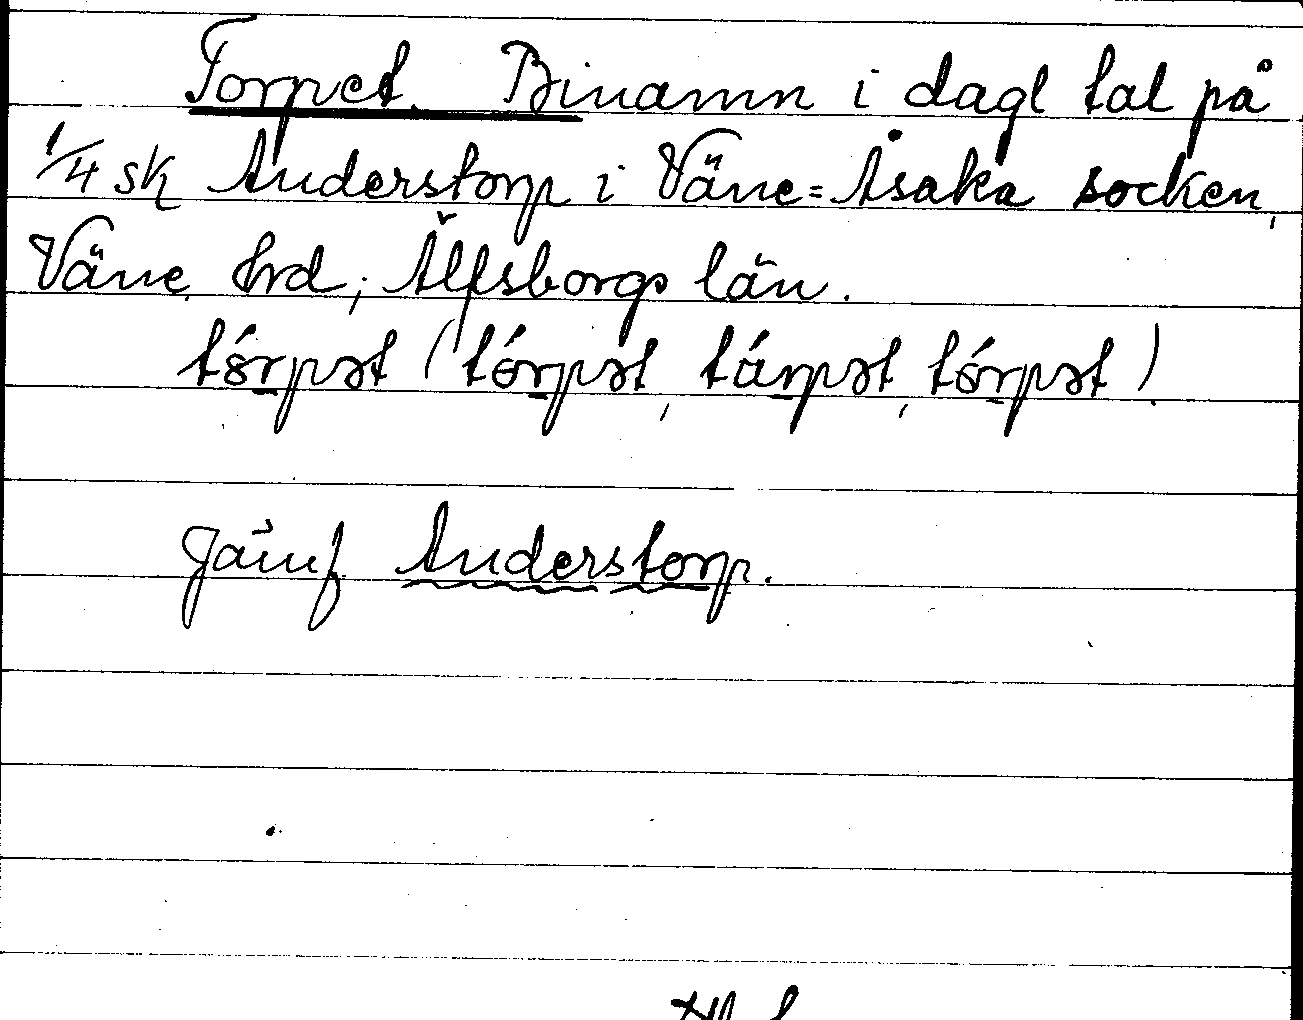 Torpet. Binamn i dagl tal på
1/4 sk Anderstorp i Väne=Åsaka socken,
Väne hrd, Älfsborgs län.
tórpət (tórpət, tárpət, tórpət).
Jämf Anderstorp.